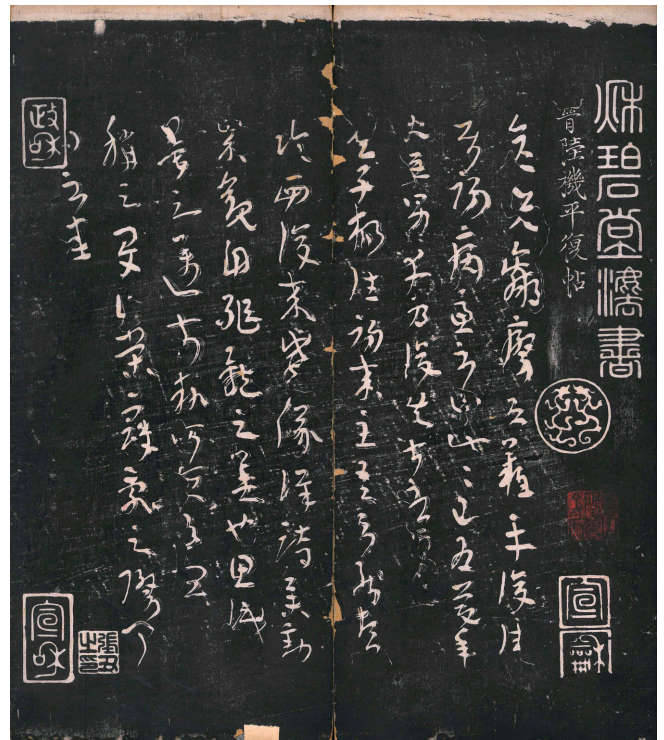 秌碧堂灋書
晉陸機平復帖
宣龢
彦先羸瘵恐難平復往
屬初病慮不止此此已為慶承
使唯男幸為復失前憂耳
吳子楊往初來主吾不能盡
臨西復來威儀詳跱舉動
成觀自軀體之美也思識
量之邁前執所恒有宜
稱之夏伯榮寇亂之際聞
問不悉
政和
宣和
張丑之印